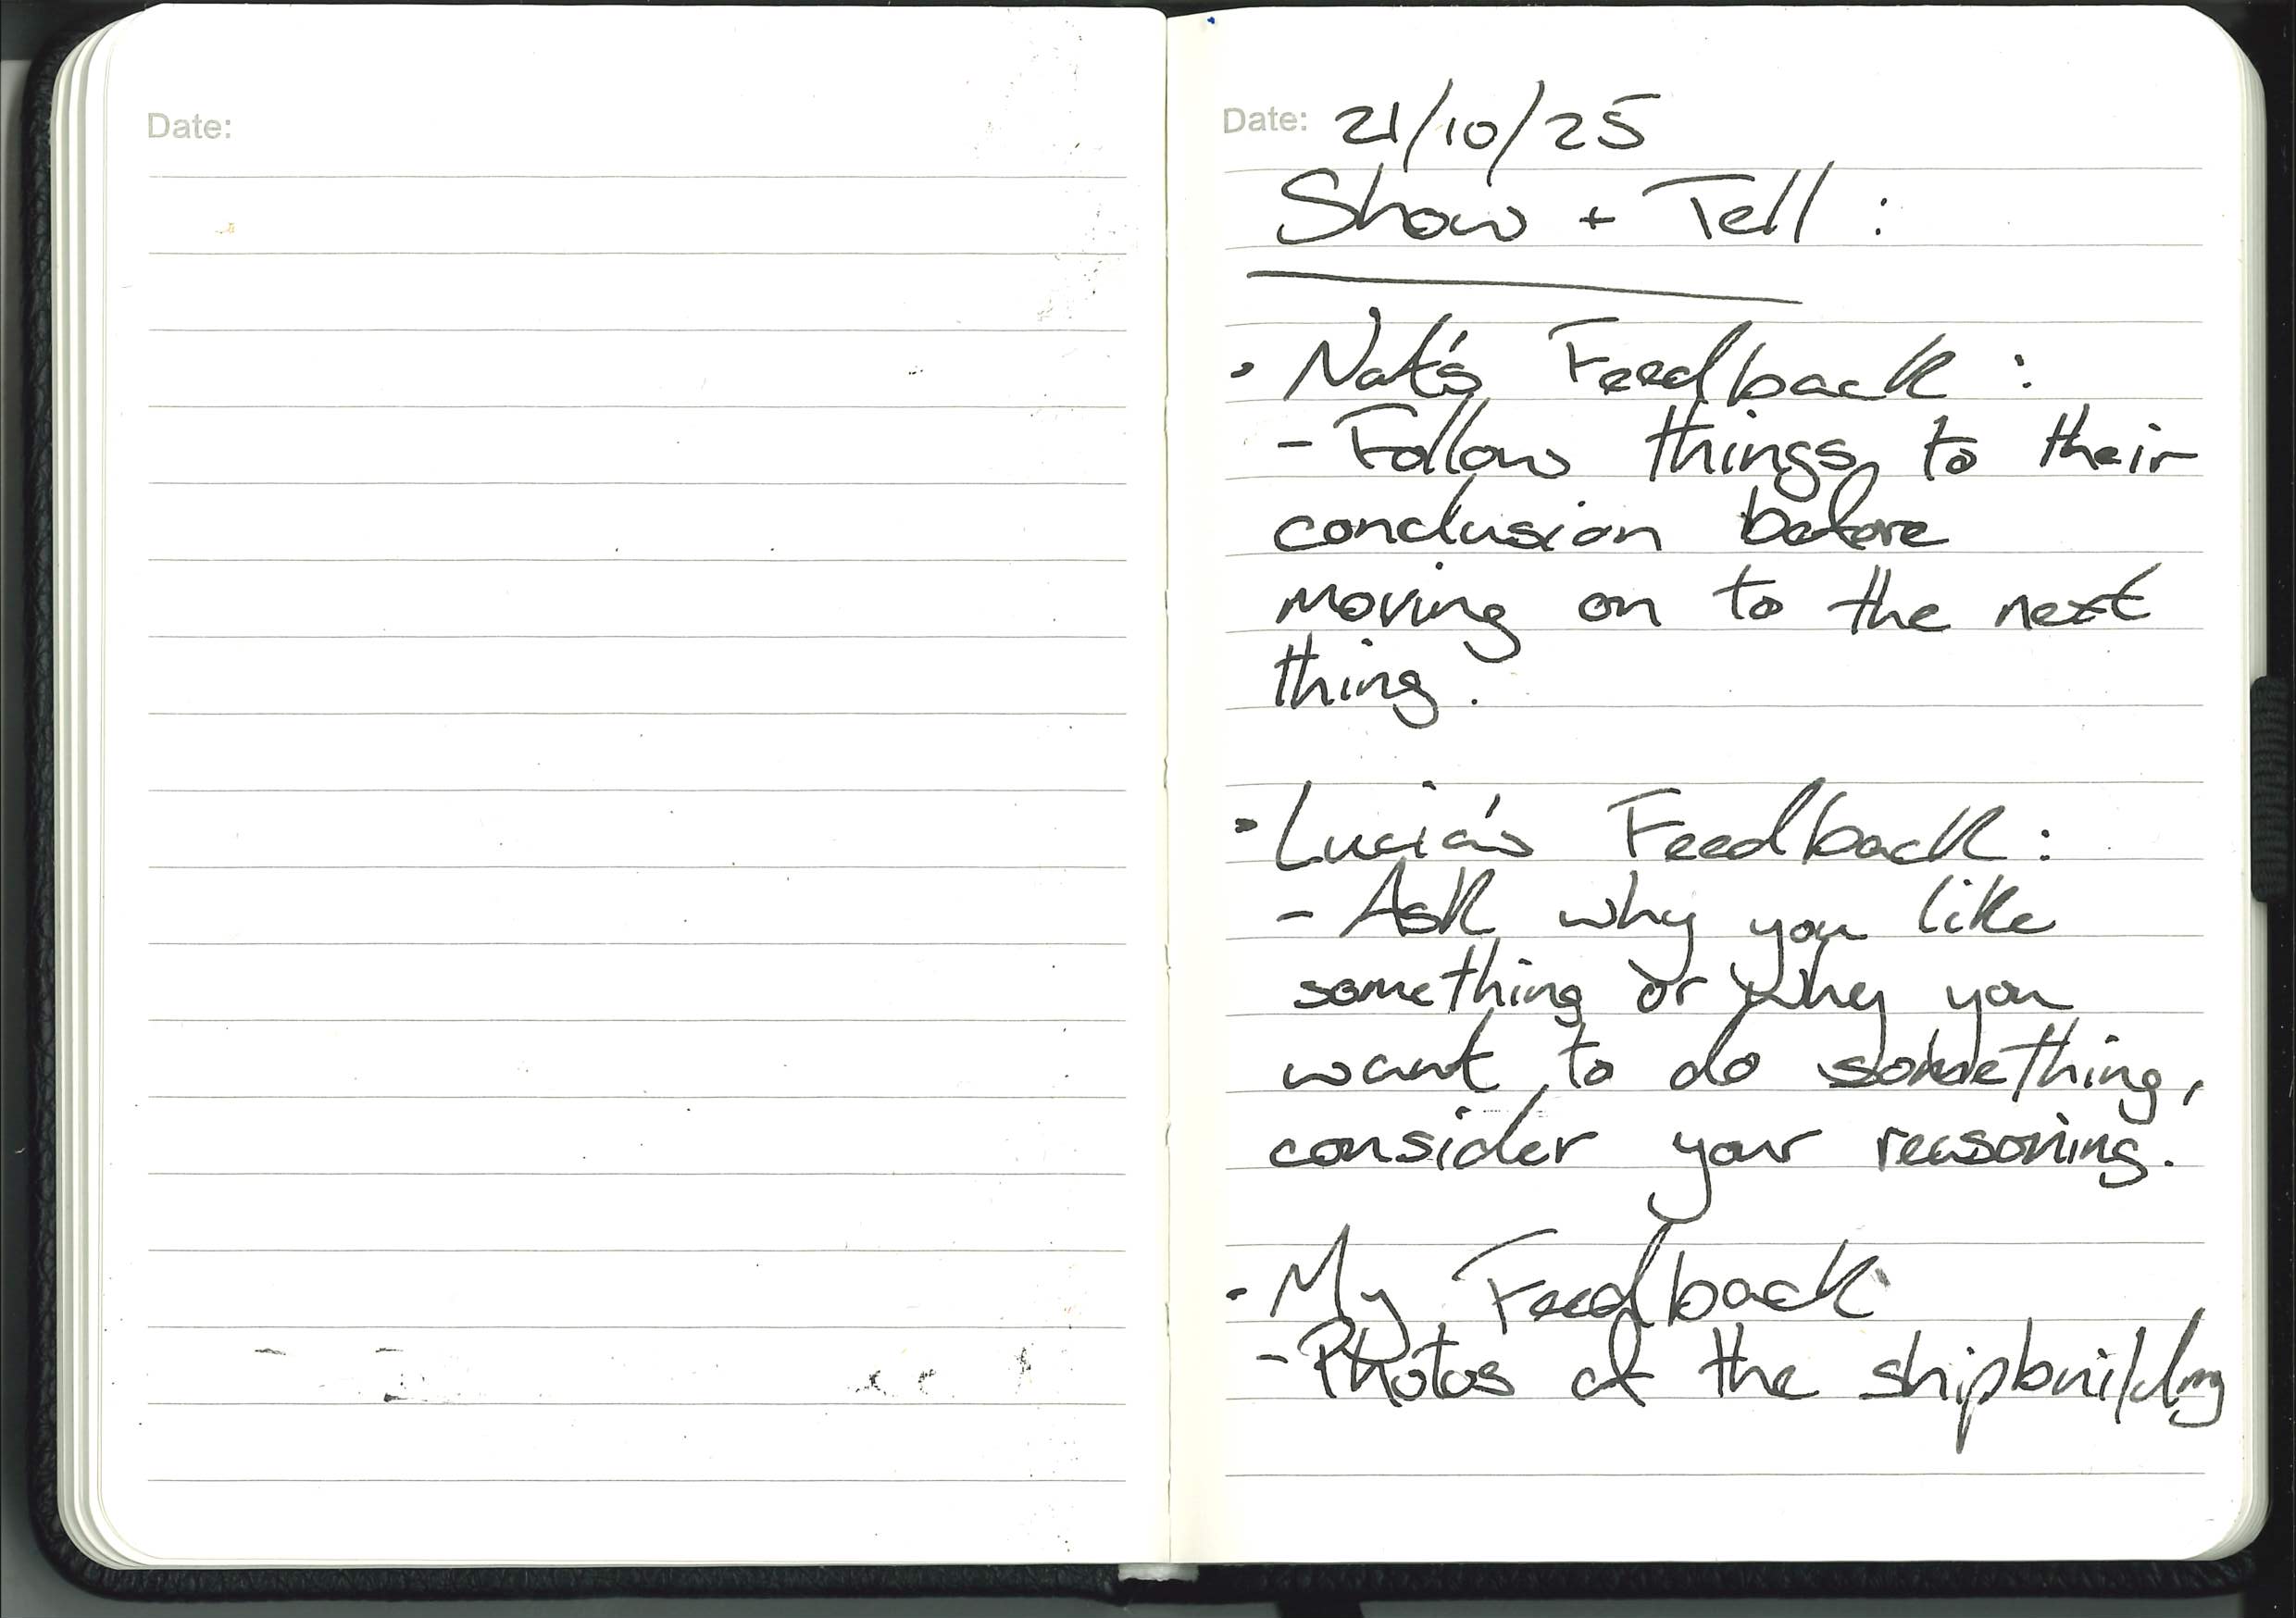 Date:
Date: 21/10/25
Show + Tell :
• Nat's Feedback :
- Follow things to their
conclusion before
moving on to the next
thing.
• Lucia's Feedback :
- Ask why you like
something or why you
want to do something,
consider your reasoning.
• My Feedback
- Photos of the shipbuilding